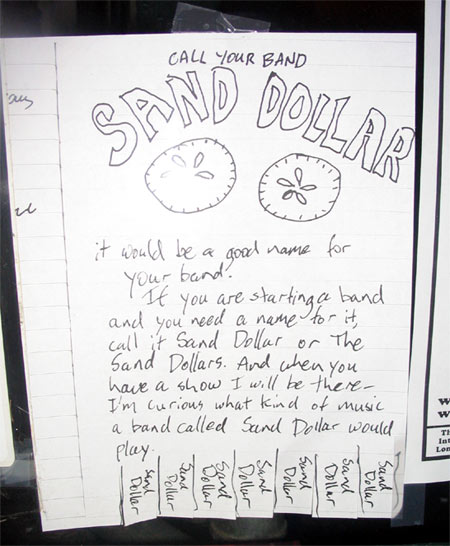 CALL YOUR BAND
SAND DOLLAR
it would be a good name for
your band.
If you are starting a band
and you need a name for it,
call it Sand Dollar or The
Sand Dollars. And when you
have a show I will be there–
I'm curious what kind of music
a band called Sand Dollar would
play.
Sand Dollar
Sand Dollar
Sand Dollar
Sand Dollar
Sand Dollar
Sand Dollar
Sand Dollar